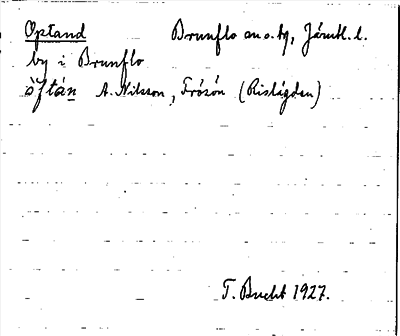 Optand Brunflo sn o. tg, Jämtl. l.
by i Brunflo
òftán A. Nilsson, Frösön (Risägden)
T. Bucht 1927.